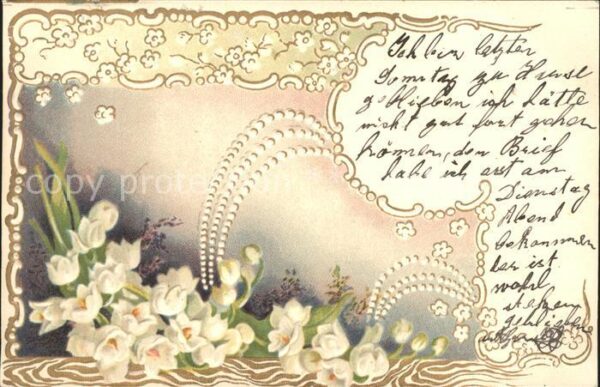 Ich bin letzter
Sonntag zu Hause
geblieben ich hätte
nicht gut fort gehen
können, den Brief
habe ich erst am
Dienstag
Abend
bekommen
der ist
wohl
liegen
geblieben
copy protection